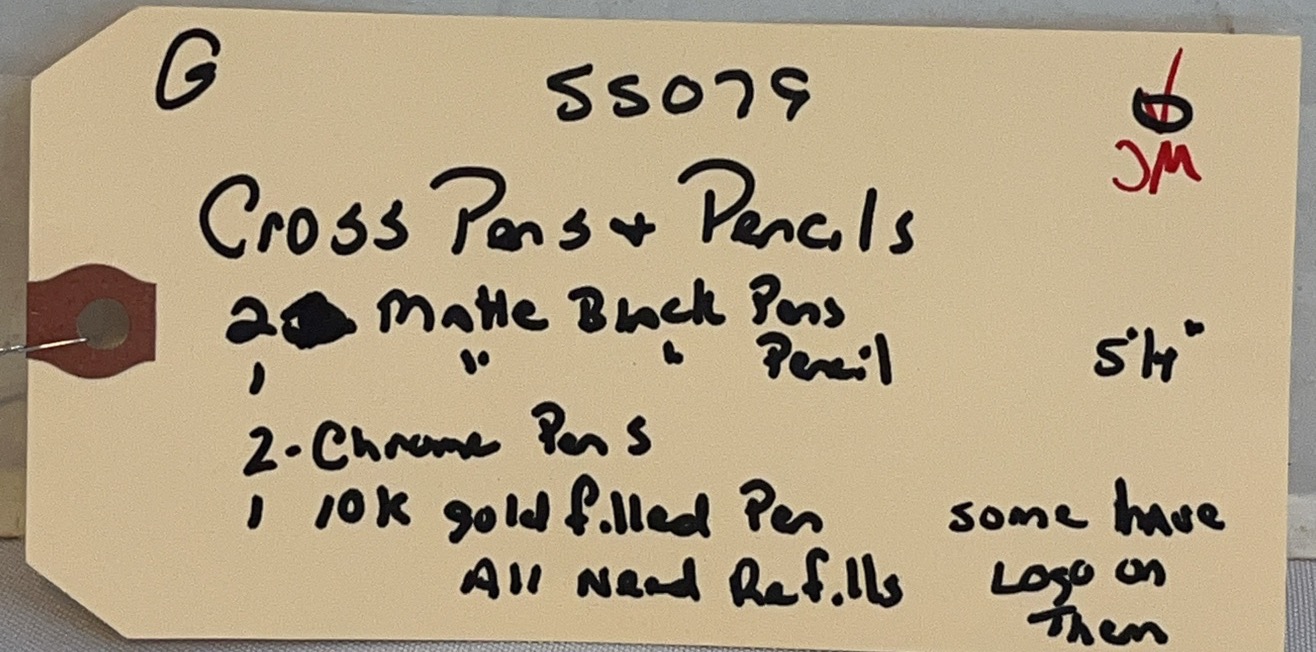 G 55079
JM
Cross Pens + Pencils
2 Matte Black Pens
1 " " Pencil 5 1/4"
2 - Chrome Pens
1 10K gold filled Pen some have
All Need Refills Logo on
Them